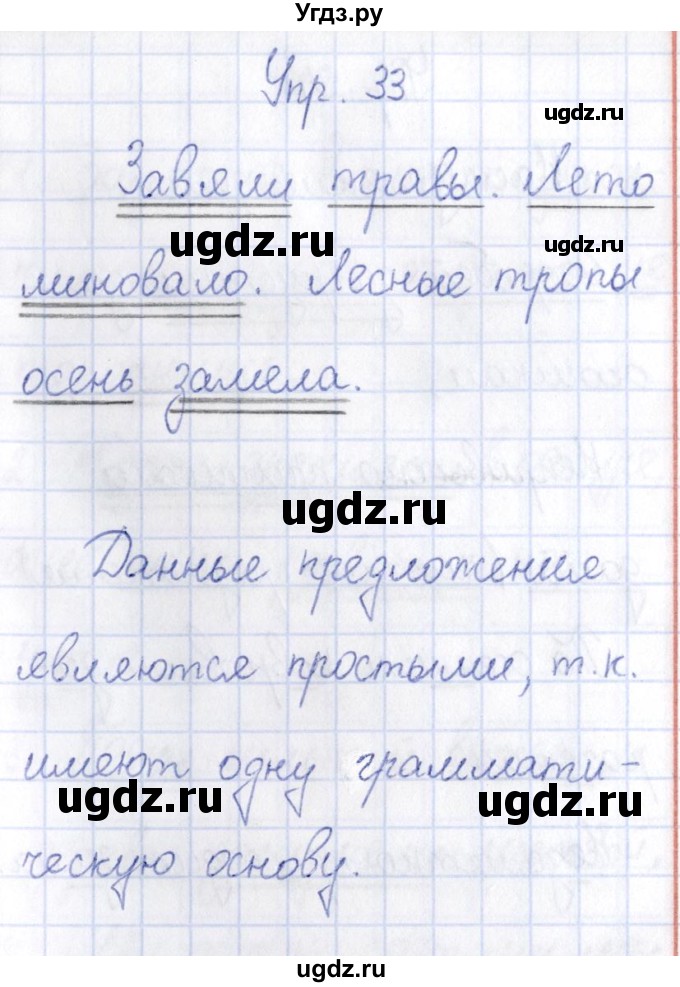 Угдз.ру
Упр. 33
ugdz.ru
Завяли травы. Лето
ugdz.ru ugdz.ru
миновало. Лесные тропы
осень замела.
ugdz.ru
Данные предложения
являются простыми, т.к.
имеют одну граммати-
ugdz.ru ugdz.ru
ческую основу.
ugdz.ru